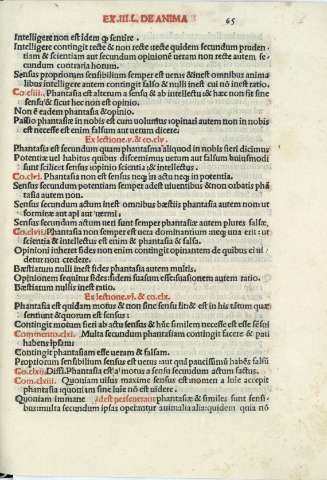 EX .III. L. DE ANIMA 65
Intelligere non est idem ꝙ sentire.
Intelligere contingit recte & non recte recte quidem secundum pruden
tiam & scientiam aut secundum opinionē ueram non recte autem se-
cundum contraria horum.
Sensus propriorum sensibilium semper est uerus & inest omnibus animali
libus intelligere autem contingit falso & nulli inest cui nō inest ratio.
Co. cliii. Phantasia est alterum a sensu & ab intellectu & hæc non fit sine
sensu & sicut hec non est opinio.
Non ē eadem phantasia & opinio.
Passio phantasię in nobis est cum uoluntus opinari autem non in nobis
est necesse est enim falsum aut uerum dicere.
Ex lectione .v. & co. clv.
Phantasia est secundum quam phantasma aliquod in nobis fieri dicimus
Potentię uel habitus quibus discernimus uerum aut falsum huiusmodi
sunt scilicet sensus opinio scientia & intellectus.
Co. clvi. Phantasia non est sensus neq; in actu neq; in potentia.
Sensus secundum potentiam semper adest uiuentibus & non orbatis phā
tasia autem non.
Sensus secundum actum inest omnibus bæstiis phantasia autem non ut
formicæ aut api aut uermi.
Sensus secundum actum ueri sunt semper phantasiæ autem plures falsę.
Co. clvii. Phantasia non semper est uera
scientia & intellectus est enim & phantasia & falsa.
Opinioni inheret fides non enim contingit opinantem de quibus ei uī
detur non credere.
Bæstiarum nulli inest fides phantasia autem multis.
Opinionem sequitur fides fidem suasum esse suasionem autem ratio.
Bæstiarum nullis inest ratio.
Ex lectione .vi. & co. clx.
Phantasia est quidam motus & non sine sensu fit & est in his tātum quę
sentiunt & quorum est sensus:
Contingit motum fieri ab actu sensus & hūc similem necesse est esse sēsui
Commento. clxi. Multa secundum phantasiam contingit facere & pati
habens ipsum
Contingit phantasiam esse ueram & falsam.
Propriorum sensibilium sensus est uerus aut quā paucissimū habēs falsū
Co. clxii. Diffi. Phantasia est motus a sensu secundum actum factus.
Com. clxiii. Quoniam uisus maxime sensus est nomen a luce accepit
phantasia quoniam sine luce nō est uidere.
Quoniam immane id est perseuerant phantasiæ & similes sunt sensi-
bus multa secundum ipsas operatur animalia aliquidem quia nō